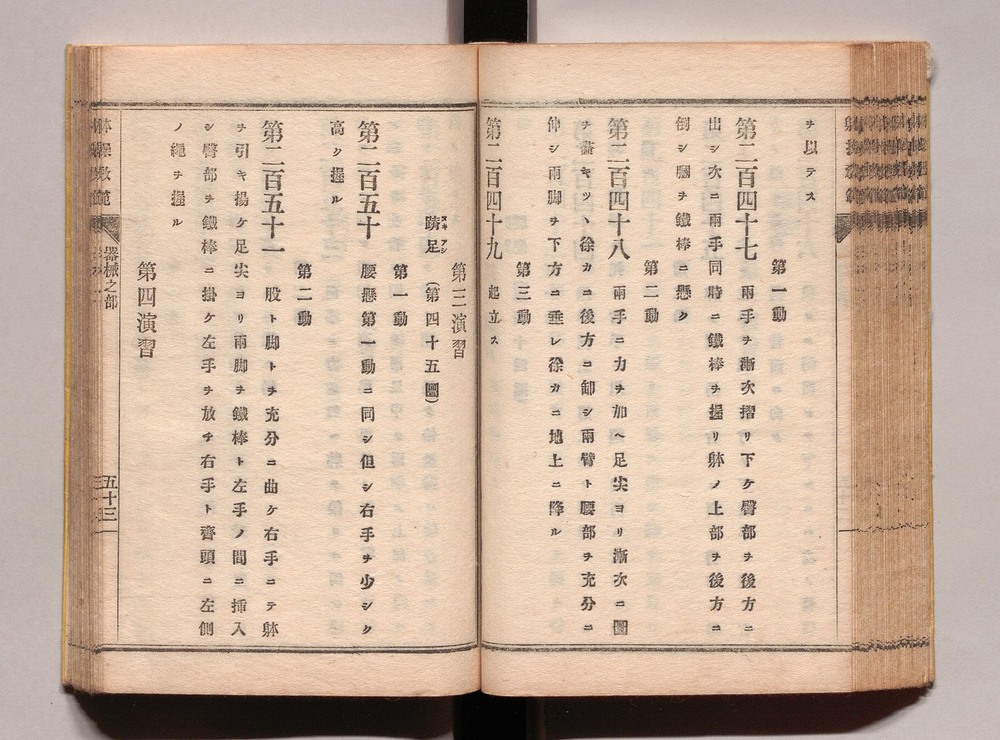 ヲ以テス
第一動
第二百四十七 兩手ヲ漸次摺リ下ケ臀部ヲ後方ニ
出シ次ニ兩手同時ニ鐵棒ヲ握リ躰ノ上部ヲ後方ニ
倒シ膕ヲ鐵棒ニ懸ク
第二動
第二百四十八 兩手ニ力ヲ加ヘ足尖ヨリ漸次ニ圖
ヲ畵キツヽ徐カニ後方ニ卸シ兩臂ト腰部ヲ充分ニ
伸シ兩脚ヲ下方ニ垂レ徐カニ地上ニ降ル
第三動
第二百四十九 起立ス
第三演習
跨足(第四十五圖)
ヌキアシ
第一動
第二百五十 腰懸第一動ニ同シ但シ右手ヲ少シク
高ク握ル
第二動
第二百五十一 股ト脚トヲ充分ニ曲ケ右手ニテ躰
ヲ引キ揚ケ足尖ヨリ兩脚ヲ鐵棒ト左手ノ間ニ挿入
シ臀部ヲ鐵棒ニ掛ケ左手ヲ放チ右手ト齊頭ニ左側
ノ繩ヲ握ル
第四演習
器械之部
五十三